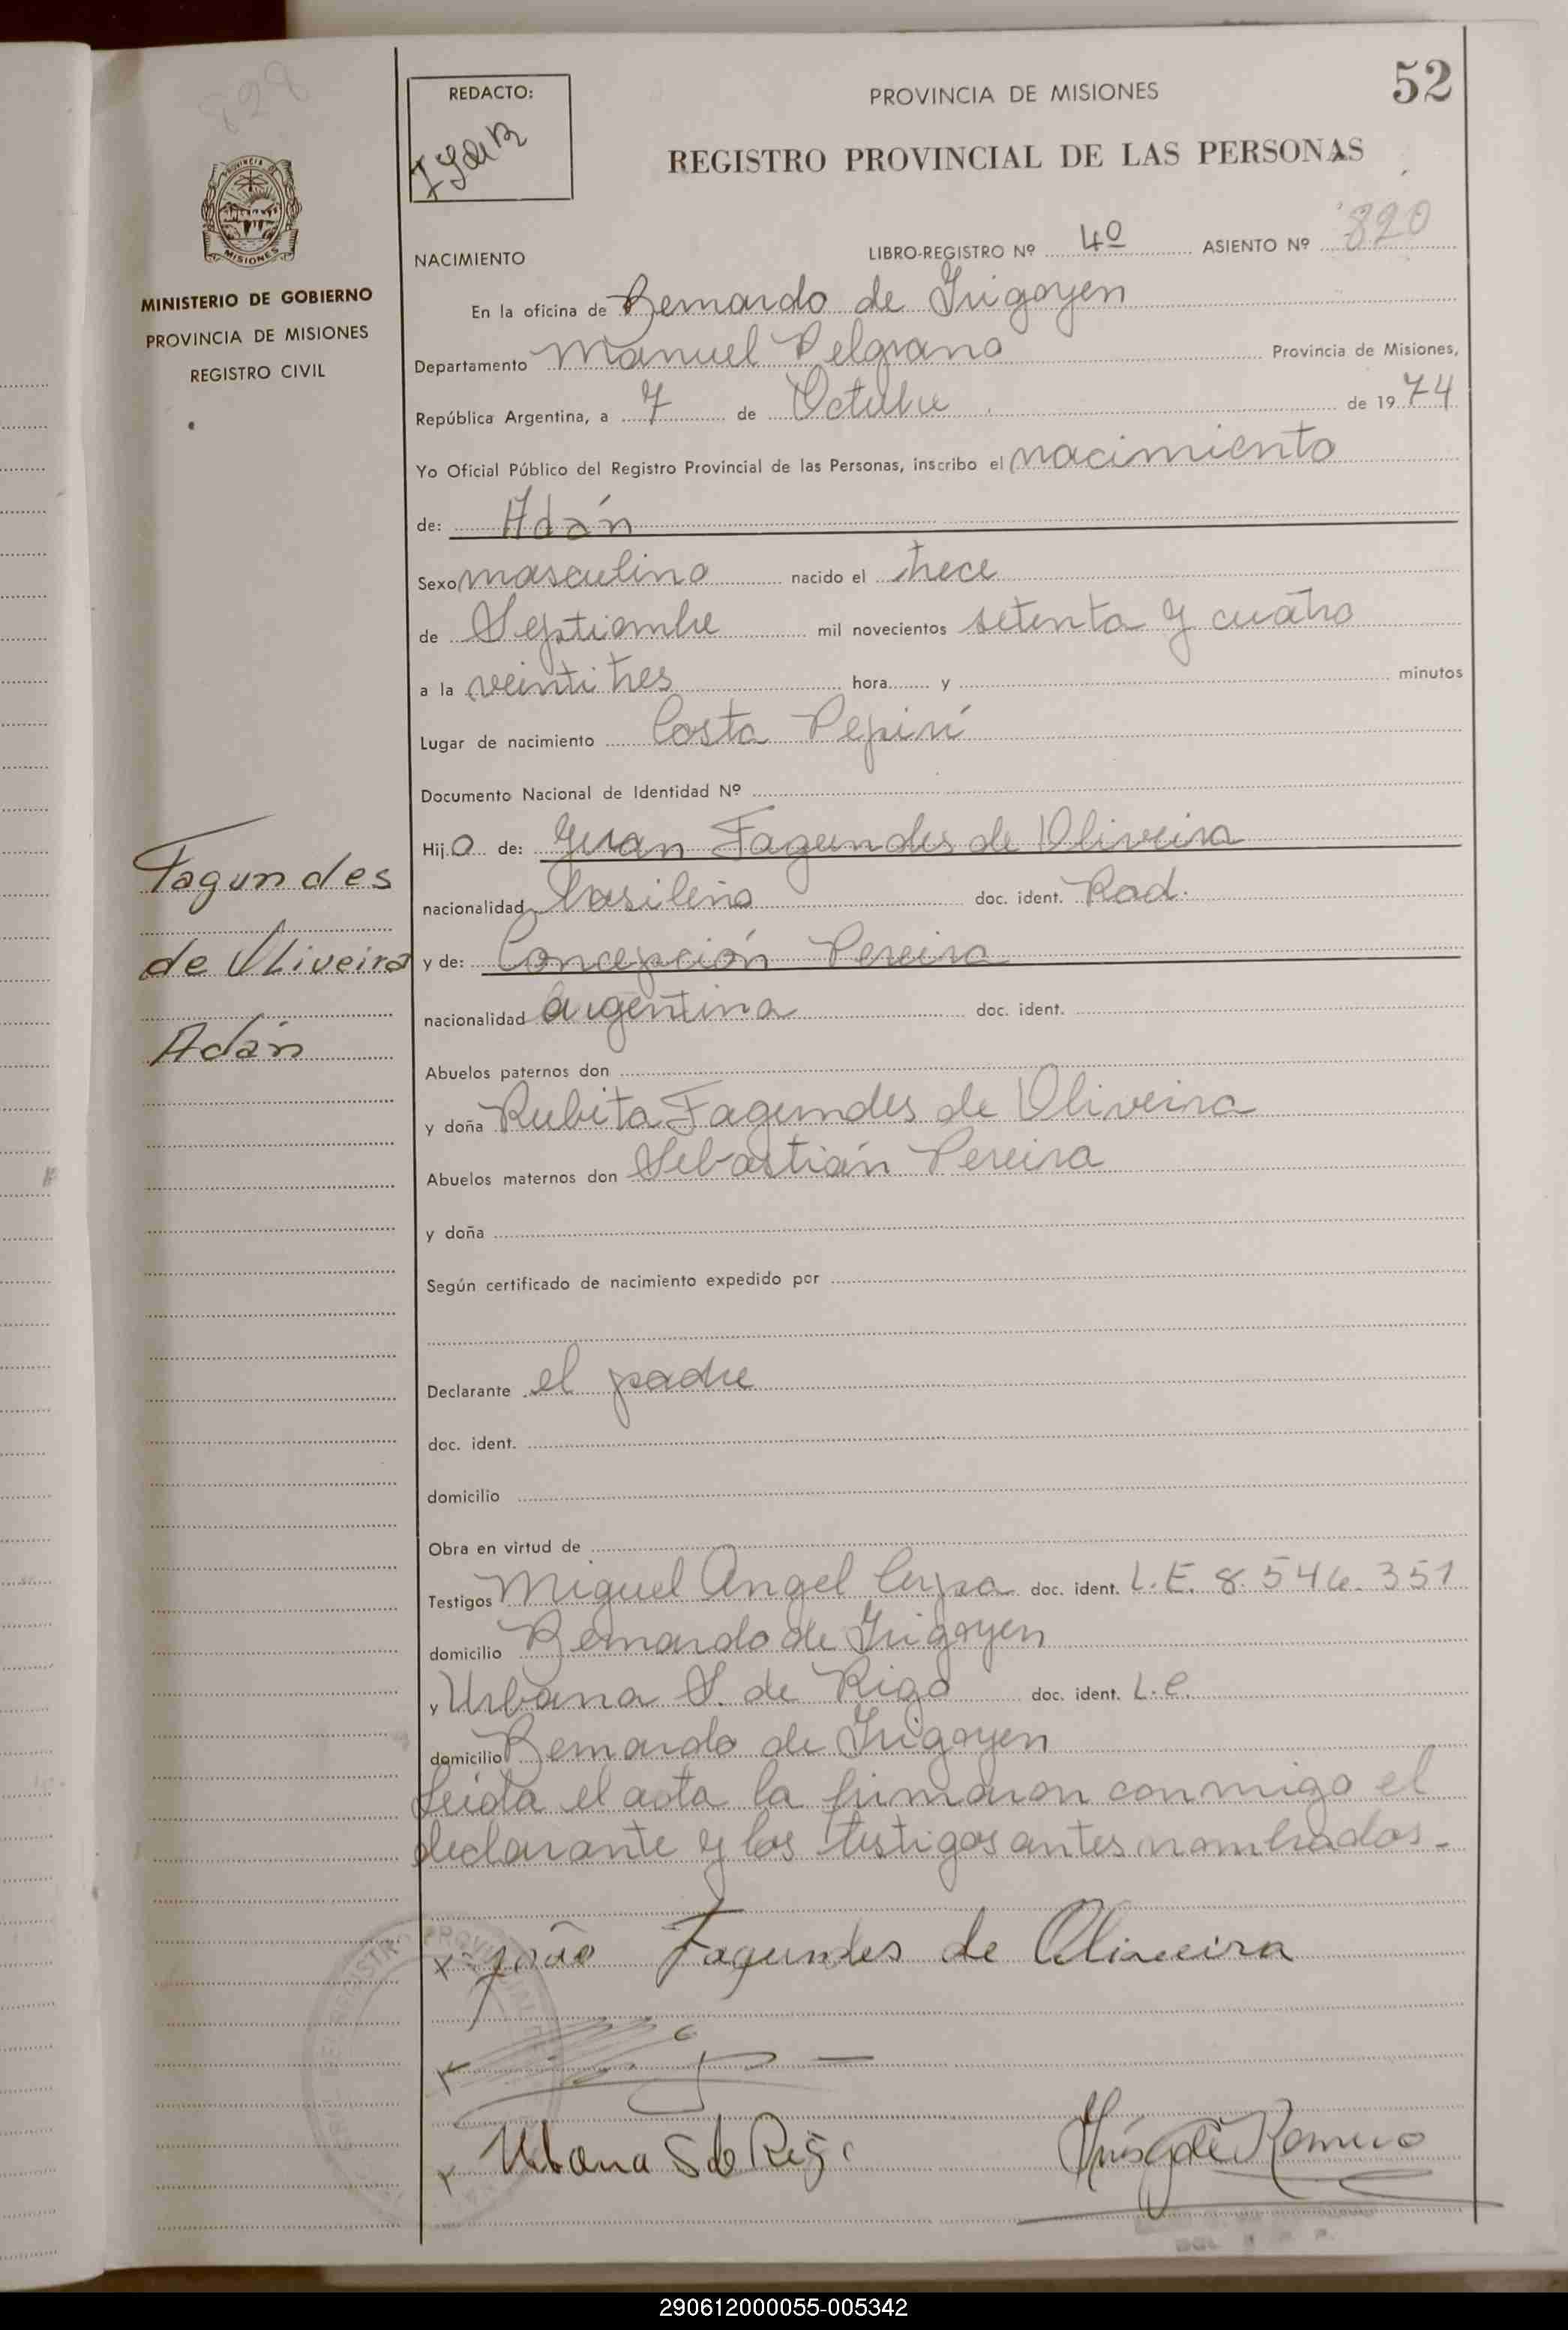 52
REDACTO:
PROVINCIA DE MISIONES
REGISTRO PROVINCIAL DE LAS PERSONAS
LIBRO-REGISTRO Nº 4º ASIENTO Nº 820
NACIMIENTO
MINISTERIO DE GOBIERNO
PROVINCIA DE MISIONES
REGISTRO CIVIL
En la oficina de Bernardo de Irigoyen
Departamento Manuel Belgrano Provincia de Misiones,
República Argentina, a 7 de Octubre de 1974
Yo Oficial Público del Registro Provincial de las Personas, inscribo el nacimiento
de: Adán
Sexo masculino nacido el trece
de Septiembre mil novecientos setenta y cuatro
a la veintitres hora y minutos
Lugar de nacimiento Costa Pepirí
Documento Nacional de Identidad Nº
Hijo de: Juan Fagundes de Oliveira
nacionalidad brasileña doc. ident. Rad.
y de: Concepción Pereira
nacionalidad argentina doc. ident.
Fagundes
de Oliveira
Adán
Abuelos paternos don
y doña Rubita Fagundes de Oliveira
Abuelos maternos don Sebastián Pereira
y doña
Según certificado de nacimiento expedido por
Declarante el padre
doc. ident.
domicilio
Obra en virtud de
Testigos Miguel Angel doc. ident. L.E. 8.546.351
domicilio Bernardo de Irigoyen
y Urbana S. de Rigo doc. ident. L.C.
domicilio Bernardo de Irigoyen
Leída el acta la firmaron conmigo el
declarante y los testigos antes nombrados.-
x João Fagundes de Oliveira
x
x Urbana S de Rigo
de Romero
290612000055-005342